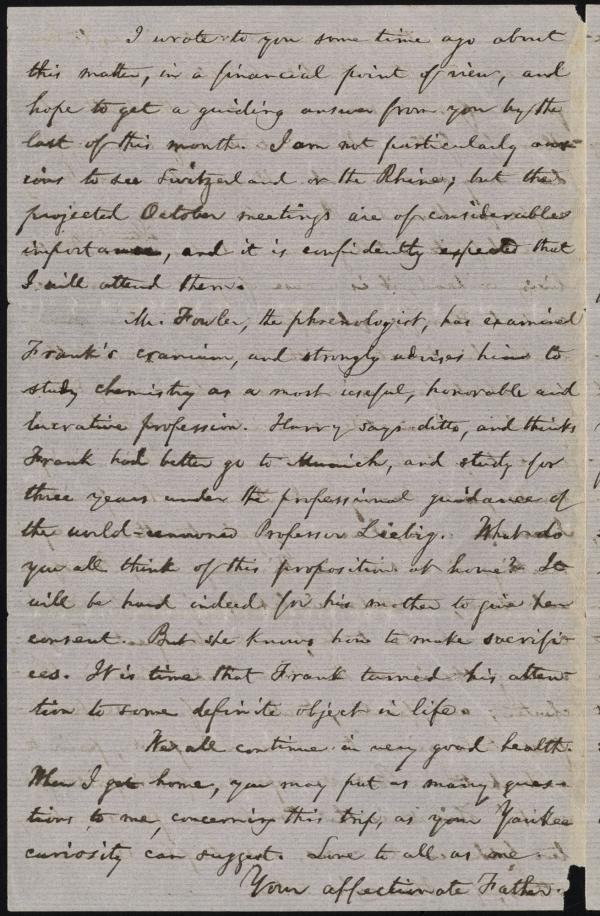 I wrote to you some time ago about
this matter, in a financial point of view, and
hope to get a guiding answer from you by the
last of this month. I am not particularly anx-
ious to see Switzerland or the Rhine; but the
projected October meetings are of considerable
importance, and it is confidently expected that
I will attend them.
Mr. Fowler, the phrenologist, has examined
Frank's cranium, and strongly advises him to
study chemistry as a most useful, honorable and
lucrative profession. Harry says ditto, and thinks
Frank had better go to Munich, and study for
three years under the professional guidance of
the world-renowned Professor Liebig. What do
you all think of this proposition at home? It
will be hard indeed for his mother to give her
consent. But she knows how to make sacrifi-
ces. It is time that Frank turned his atten-
tion to some definite object in life.
We all continue in very good health.
When I get home, you may put as many ques-
tions to me, concerning this trip, as your Yankee
curiosity can suggest. Love to all as one.
Your affectionate Father.